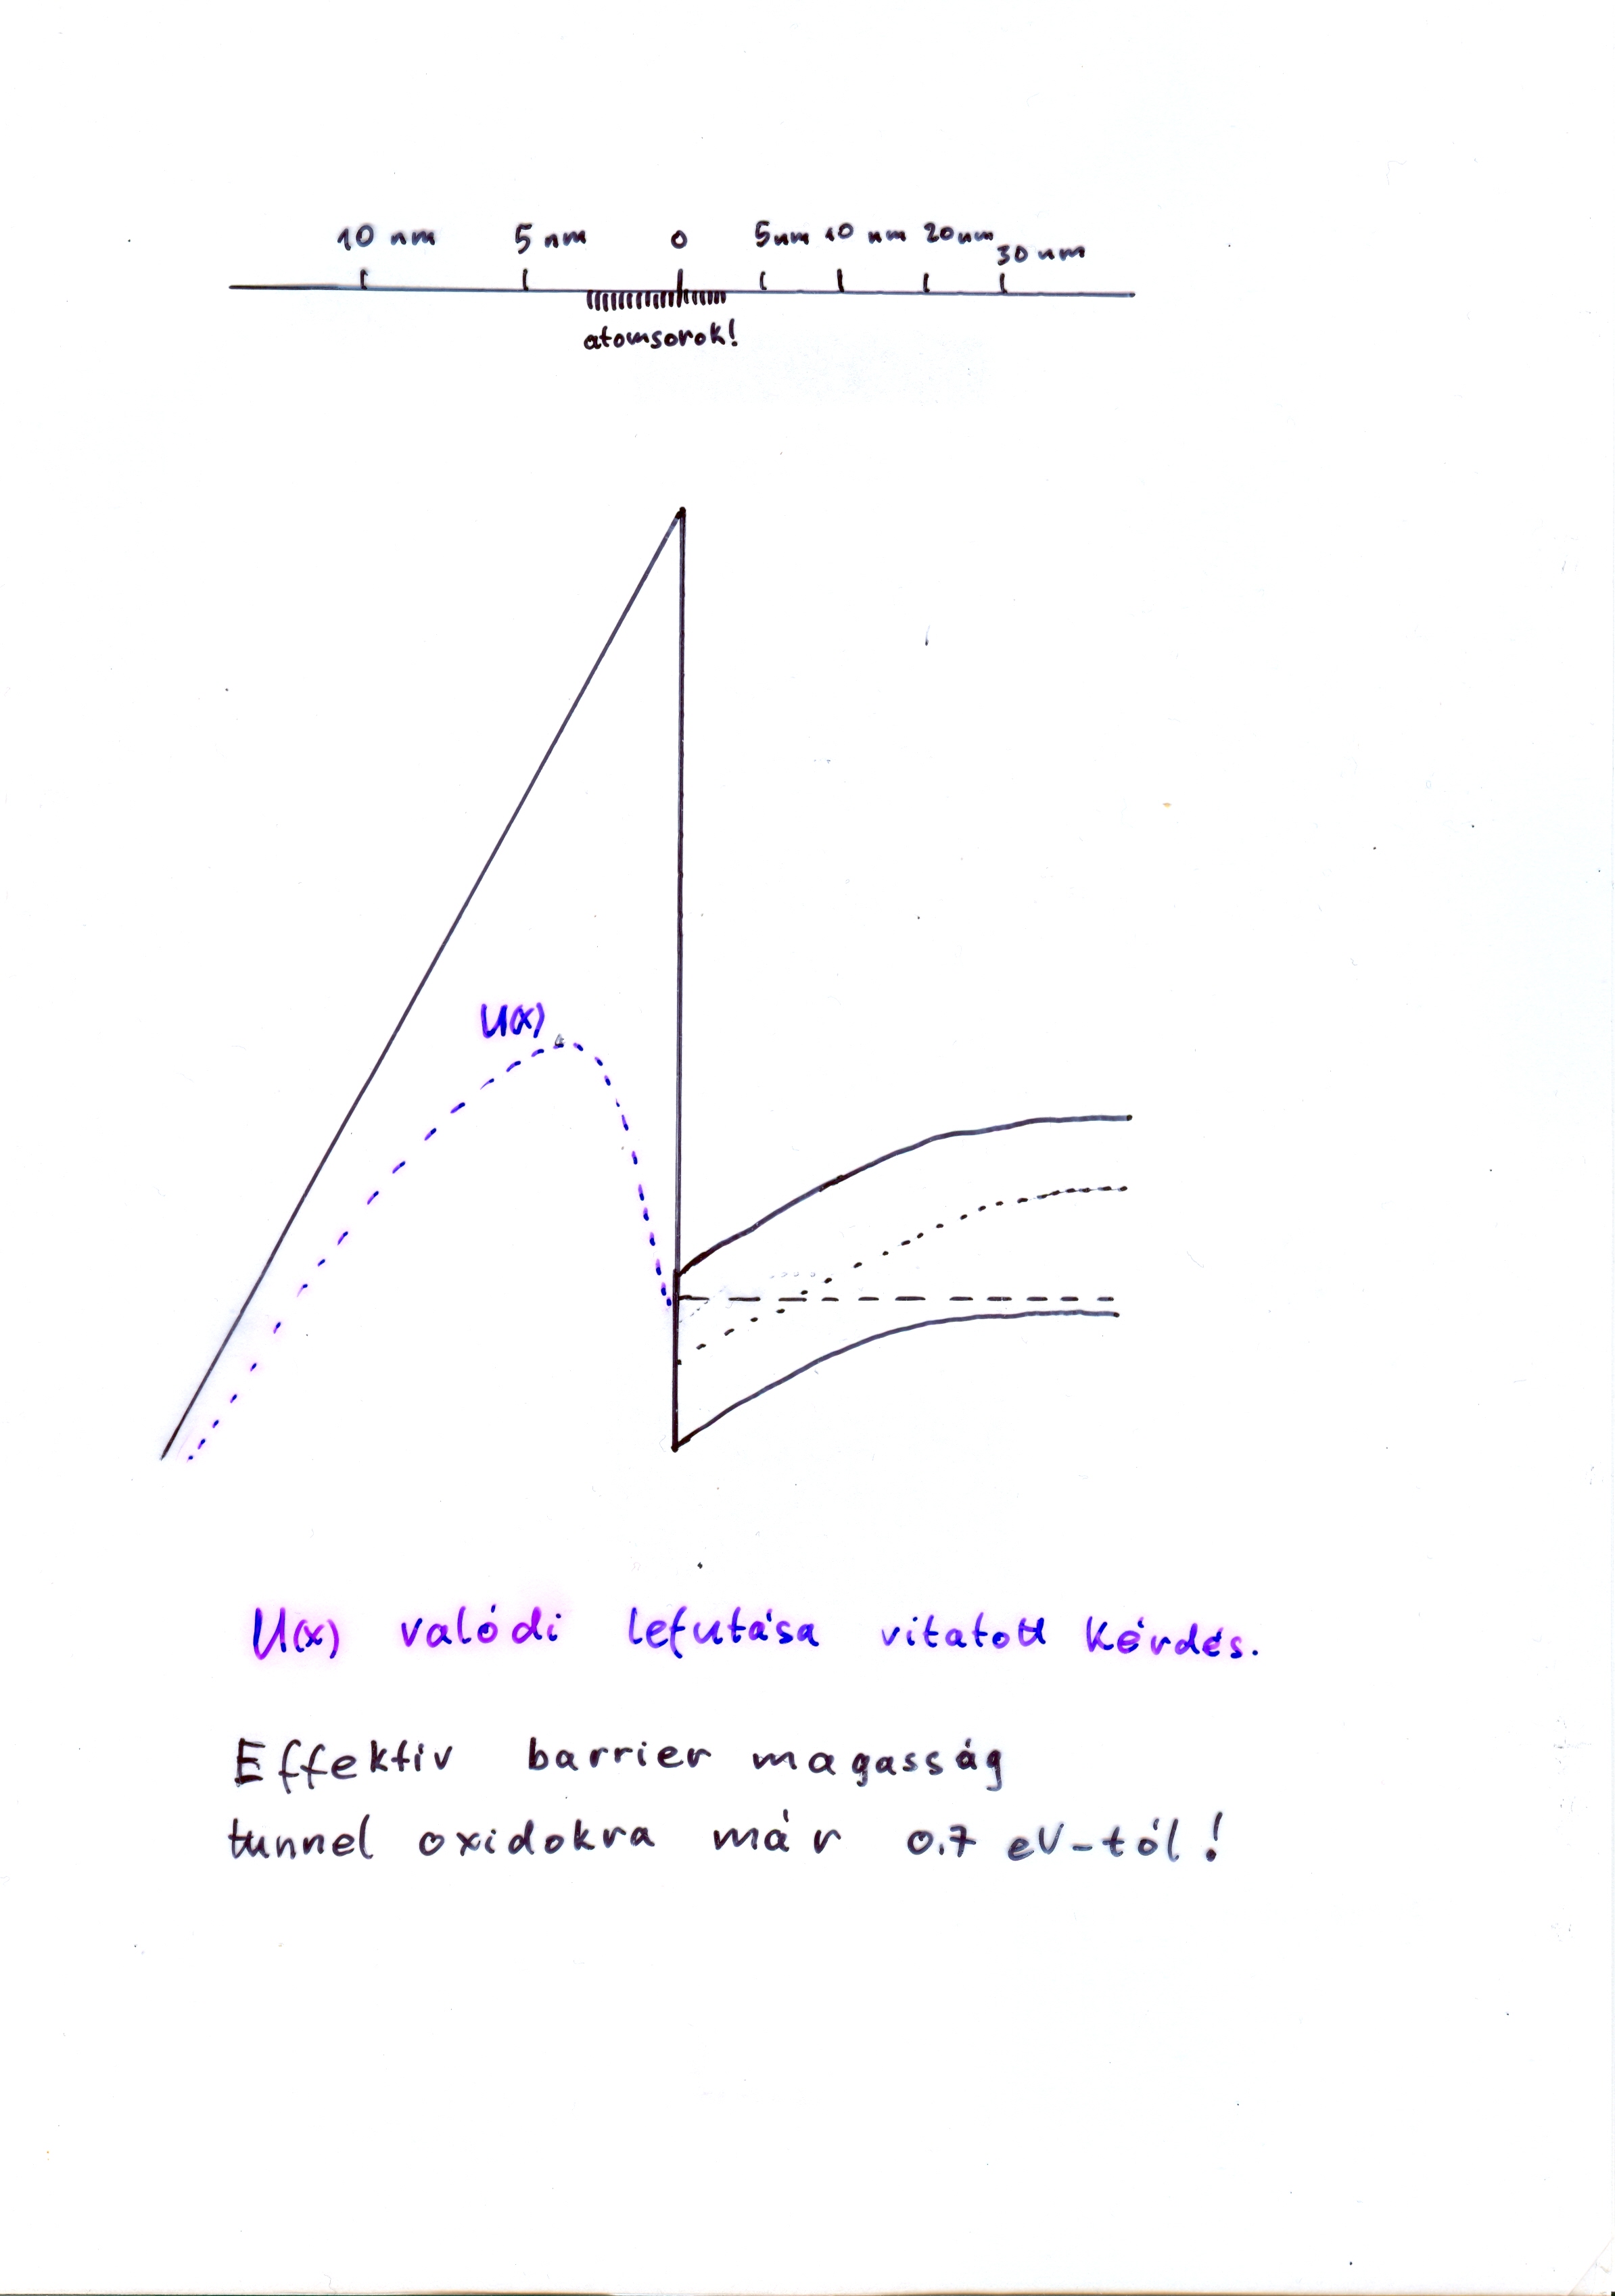 10 nm 5 nm 0 5 nm 10 nm 20 nm 30 nm
atomsorok!
U(x)
U(x) valódi lefutása vitatott kérdés.
Effektiv barrier magasság
tunnel oxidokra már 0.7 eV-tól!